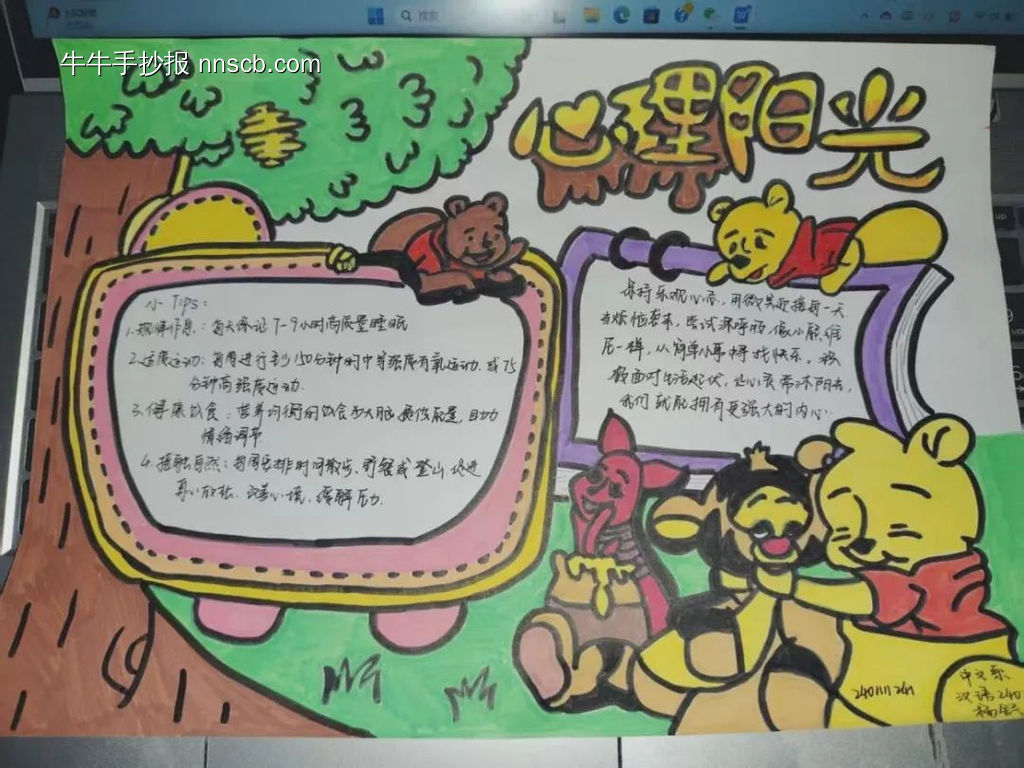 搜索
牛牛手抄报 nnscb.com
心理阳光
小 Tips：
1.规律作息：每天保证7-9小时高质量睡眠
2.适度运动：每周进行至少150分钟的中等强度有氧运动.或75
分钟高强度运动.
3.健康饮食：营养均衡的饮食为大脑提供能量，且助
情绪调节
4.接触自然：每周安排时间散步、野餐或登山 促进
身心放松.改善心境，缓解压力.
保持乐观心态，用微笑迎接每一天
当烦恼袭来，尝试深呼吸，像小熊维
尼一样，从简单小事中寻找快乐。积
极面对生活起伏，让心灵常沐阳光，
我们就能拥有更强大的内心.
中文系
汉语240
2401111241